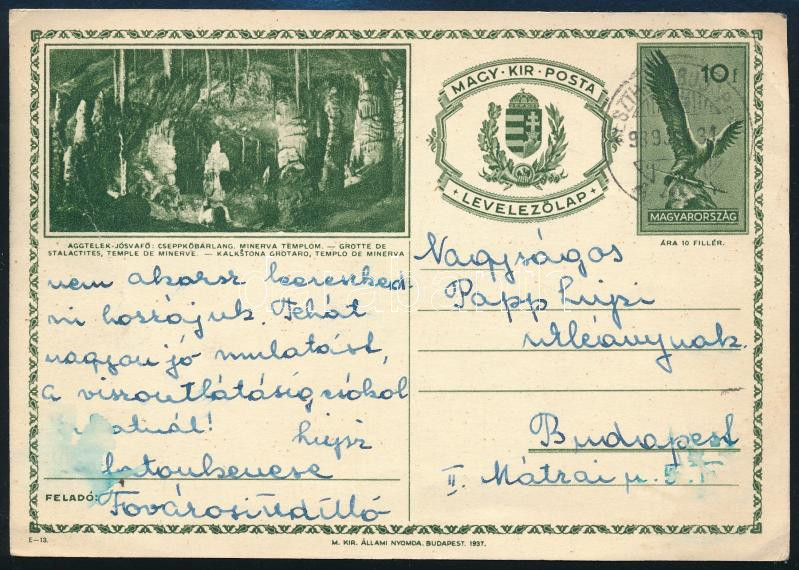 MAGY·KIR·POSTA
LEVELEZŐLAP
10 f
MAGYARORSZÁG
ÁRA 10 FILLÉR.
AGGTELEK-JÓSVAFŐ: CSEPPKŐBARLANG. MINERVA TEMPLOM. — GROTTE DE
STALACTITES, TEMPLE DE MINERVE. — KALKŜTONA GROTARO, TEMPLO DE MINERVA
nem akarsz
mi hozzájuk. Tehát
nagyon jó mulatást,
a viszontlátásig csókol
Lujzi
Balatonkenese
FELADÓ: Fővárosi üdülő
Nagyságos
Papp Lujzi
urleánynak
Budapest
II. Mátrai u. 5.
E—13.
M. KIR. ÁLLAMI NYOMDA. BUDAPEST. 1937.